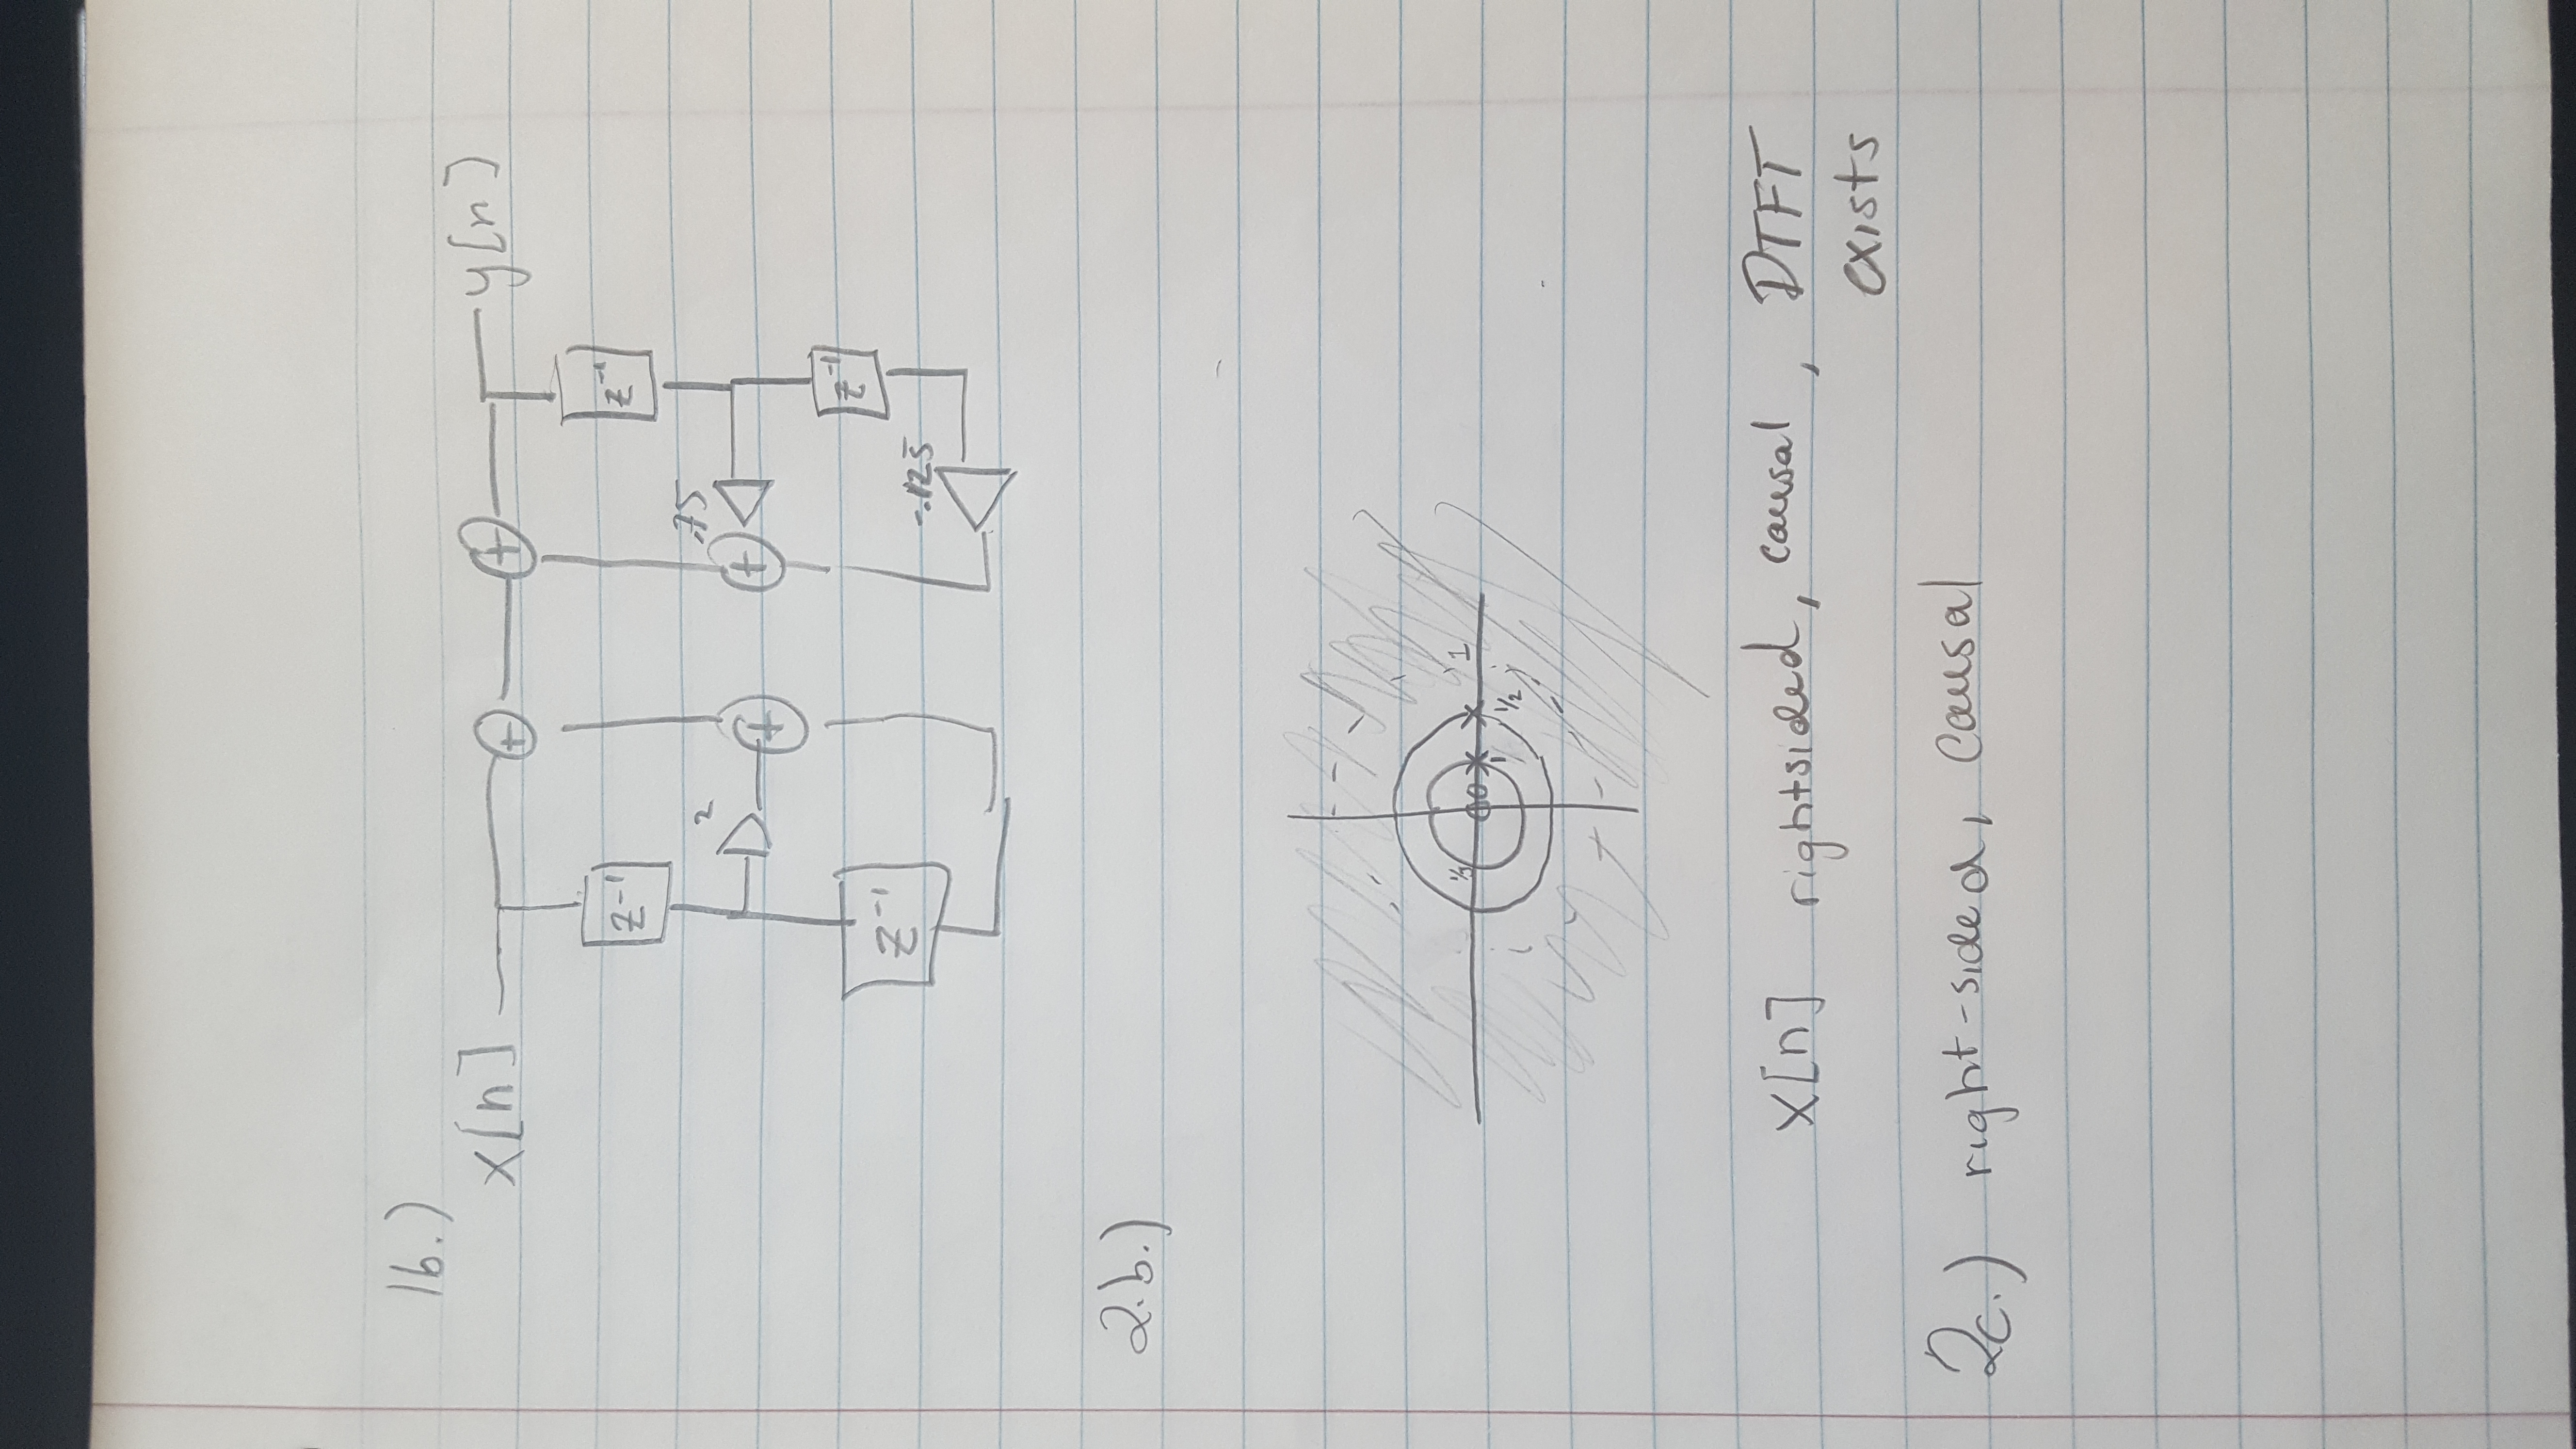 1b.)
x[n] + + y[n]
z⁻¹ z⁻¹
2 .75
+ +
z⁻¹ z⁻¹
-.125
2.b.)
1/3 1
1/2
x[n] rightsided, causal, DTFT
exists
2c.) right-sided, causal